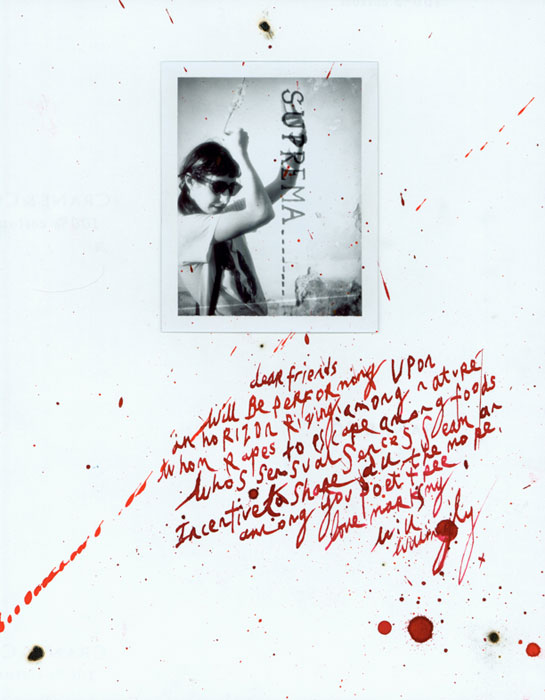 SUPREMA
dear friends
will BE PERFORMING UPON
an HORIZON RIPING among nature
whom Rapes to escape among foods
whos sensual sences steam an
Incentive to shape all the more,
among you poet tree,
love making
will